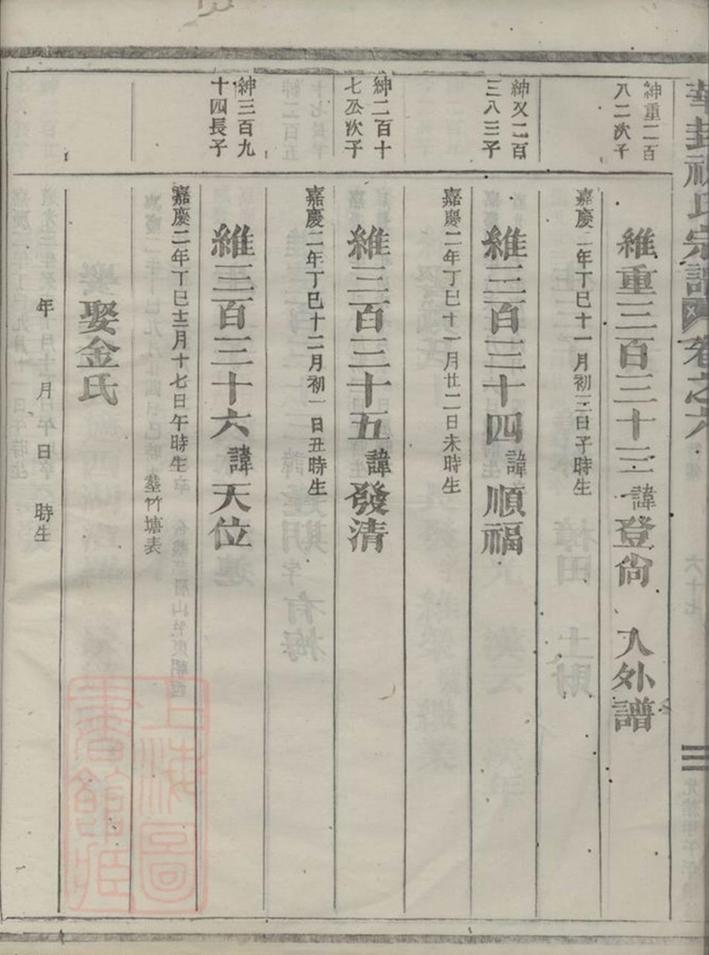 氏宗譜 卷之六
紳重二百
八二次子
維重三百三十三 諱 登尙 入外譜
嘉慶二年丁巳十一月初三日子時生
紳又二百
三八三子
維三百三十四 諱 順福
嘉慶二年丁巳十一月廿二日未時生
紳二百十
七公次子
維三百三十五 諱 發清
嘉慶二年丁巳十二月初一日丑時生
紳三百九
十四長子
維三百三十六 諱 天位
嘉慶二年丁巳十二月十七日午時生
墓竹塘表
娶金氏
年 月 日 時生
上海圖
書館藏